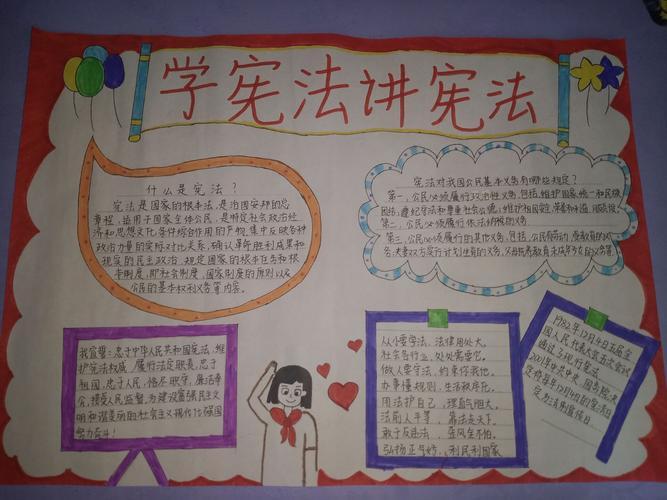 学宪法讲宪法
什么是宪法？
宪法是国家的根本法，是治国安邦的总
章程，适用于国家全体公民，是特定社会政治经
济和思想文化条件综合作用的产物，集中反映各种
政治力量的实际对比关系，确认革命胜利成果和
现实的民主政治，规定国家的根本任务和根
本制度，即社会制度，国家制度的原则以及
公民的基本权利义务等内容。
宪法对我国公民基本义务有哪些规定？
第一，公民必须履行政治性义务，包括，维护国家统一和民族
团结，遵纪守法和尊重社会公德，维护祖国安全、荣誉和利益，
第二，公民必须履行依法纳税的义务
第三，公民必须履行的其他义务，包括，公民有劳动、受教育的义
务，夫妻双方实行计划生育的义务，父母抚养教育未成年子女的义务等
我宣誓：忠于中华人民共和国宪法，维
护宪法权威，履行法定职责，忠于
祖国，忠于人民，恪尽职守，廉洁奉
公，接受人民监督，为建设富强民主文
明和谐美丽的社会主义现代化强国
努力奋斗！
从小要学法，法律用处大。
社会各行业，处处需要它。
做人要守法，约束你我他。
办事懂规则，生活秩序化。
用法护自己，理直气胆大。
法前人平等，靠法走天下。
敢于反违法，歪风全不怕。
弘扬正气好，利民利国家
1982年12月4日五届全
国人民代表大会五次会议
通过了现行宪法。
2001年中共中央、国务院决
定将每年12月4日的
定为法制宣传日